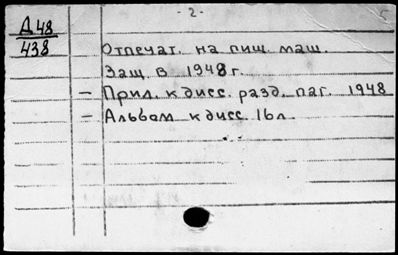 - 2 -
5
Д 48
438
Отпечат. на пиш. маш.
Защ. в 1948 г.
— Прил. к дисс. разд. паг. 1948
— Альбом к дисс. 16 л.